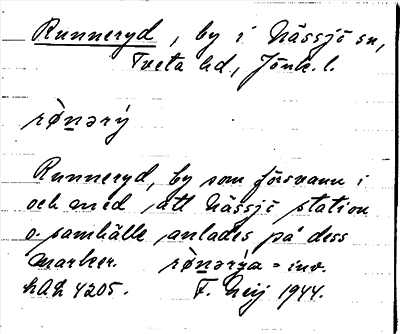 Runneryd, by i Nässjö sn,
Tveta hd, Jönk. l.
rø̀nǝrý
Runneryd, by som försvann i
och med att Nässjö station
o. samhälle anlades på dess
marker. rø̀nǝrýa = inv.
4205. F. Heij 1944.